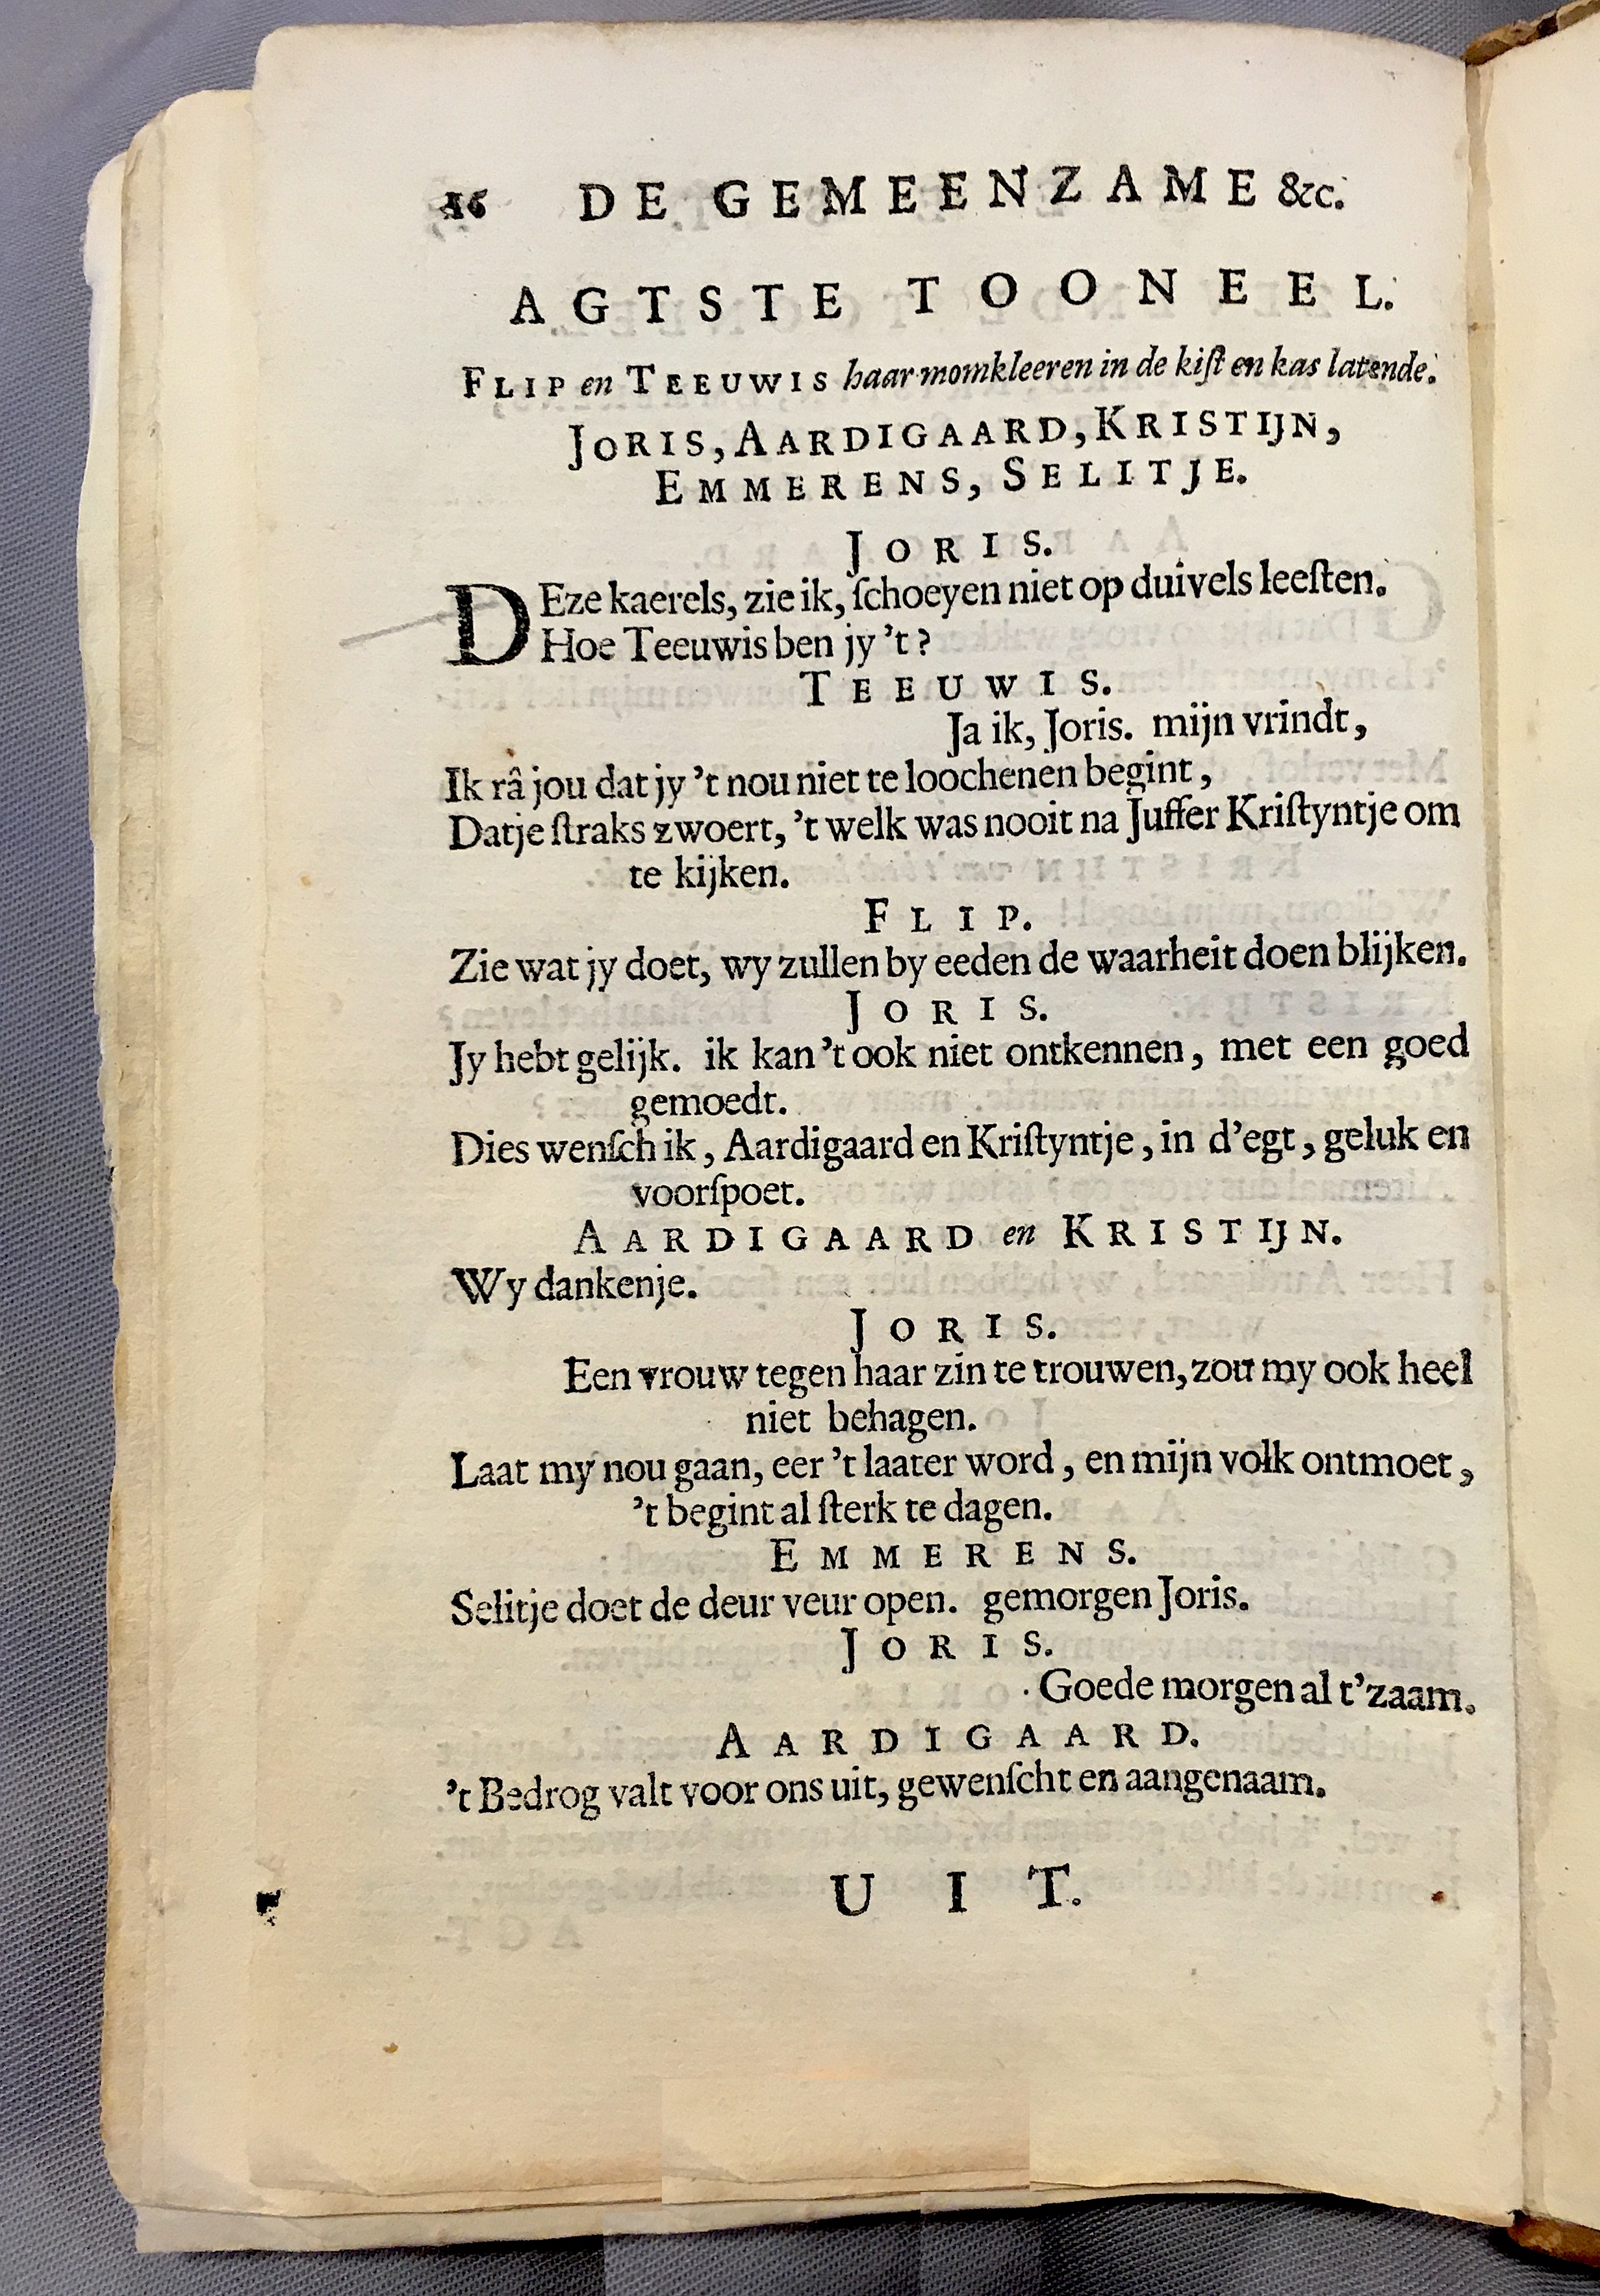 16 DE GEMEENZAME &c.
AGTSTE TOONEEL.
FLIP en TEEUWIS haar momkleeren in de kiſt en kas latende.
JORIS, AARDIGAARD, KRISTIJN,
EMMERENS, SELITJE.
JORIS.
DEze kaerels, zie ik, ſchoeyen niet op duivels leeſten.
Hoe Teeuwis ben jy 't?
TEEUWIS.
Ja ik, Joris. mijn vrindt,
Ik râ jou dat jy 't nou niet te loochenen begint,
Datje ſtraks zwoert, 't welk was nooit na Juffer Kriſtyntje om
te kijken.
FLIP.
Zie wat jy doet, wy zullen by eeden de waarheit doen blijken.
JORIS.
Jy hebt gelijk. ik kan 't ook niet ontkennen, met een goed
gemoedt.
Dies wenſch ik, Aardigaard en Kriſtyntje, in d'egt, geluk en
voorſpoet.
AARDIGAARD en KRISTIJN.
Wy dankenje.
JORIS.
Een vrouw tegen haar zin te trouwen, zou my ook heel
niet behagen.
Laat my nou gaan, eer 't laater word, en mijn volk ontmoet,
't begint al ſterk te dagen.
EMMERENS.
Selitje doet de deur veur open. gemorgen Joris.
JORIS.
Goede morgen al t'zaam.
AARDIGAARD.
't Bedrog valt voor ons uit, gewenſcht en aangenaam.
UIT.